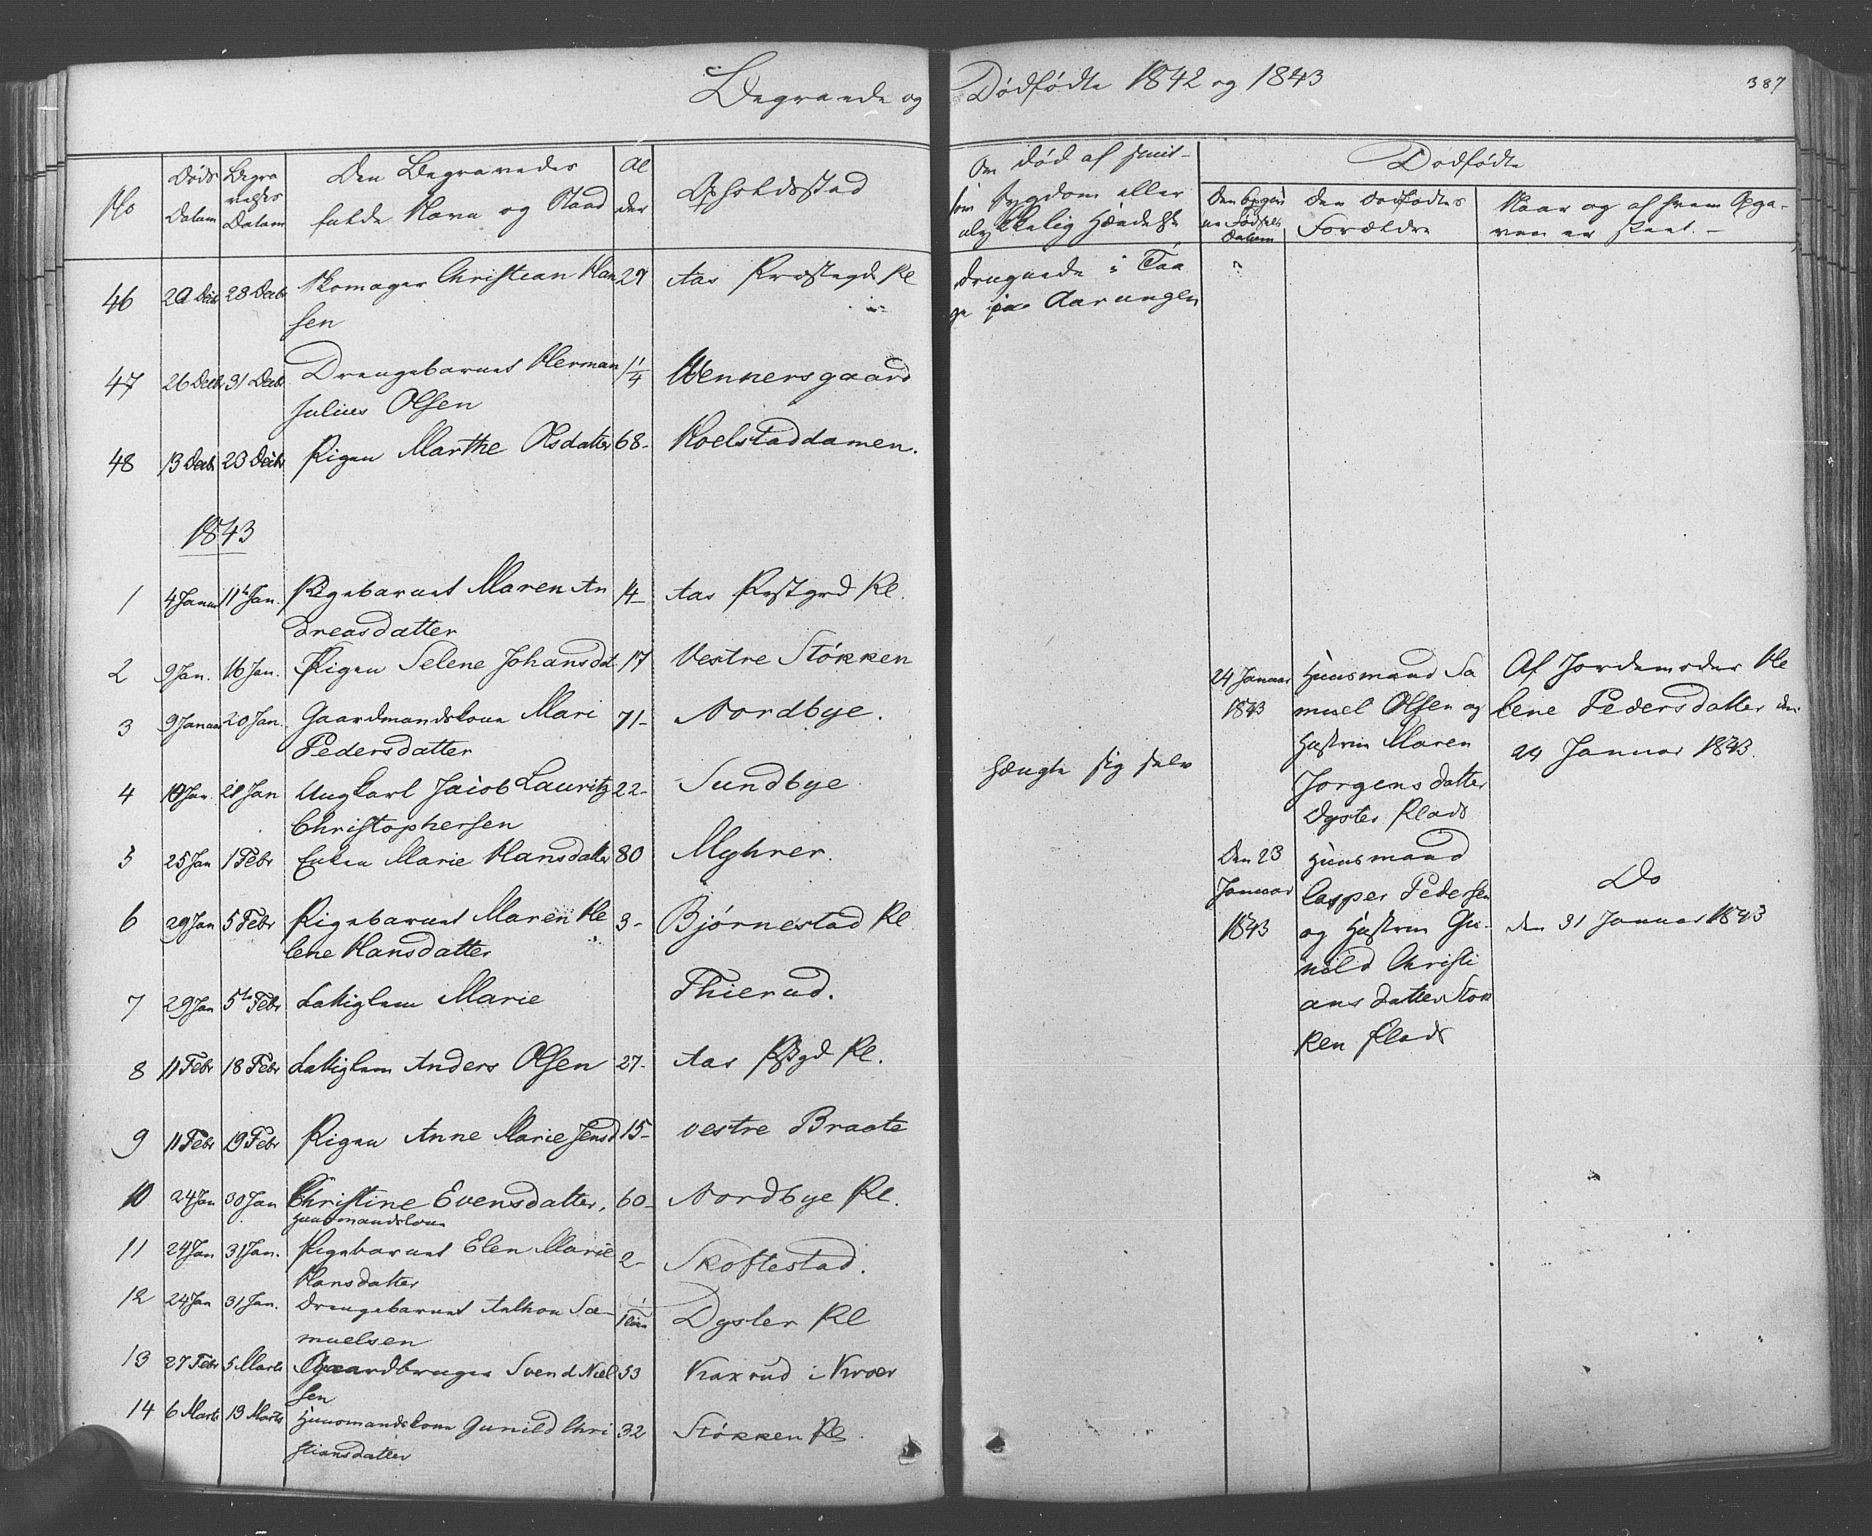 Begravede og Dødfødte 1842 og 1843
387
No
Døds Datum
Begravelses Datum
Den Begravedes fulde Navn og Stand
Alder
Opholdssted
Om død af smitsom Sygdom eller ulykkelig Hændelse
Dødfødte
Den Opgivne Fødsels Datum
Den Dødfødtes Forældre
Naar og af hvem Opgaven er skeet.
46 20 Decbr 28 Decbr Skomager Christian Han 27 Aas Præstegd Pl
sen
druknede i Taa
ge paa Aarungen
47 26 Decbr 31 Decbr Drengebarnet Herman 1 1/4 Wennersgaard
Julius Olsen
48 13 Decbr 23 Decbr Pigen Marthe Olsdatter 68- Holstaddamen.
1843
1 4 Januar 11te Jan. Pigebarnet Maren An 14 Aas Prstgrd Pl.
dreasdatter
2 9 Jan. 16 Jan. Pigen Selene Johansdat 17 Vestre Støkken
3 9 Januar 20 Jan. Gaardmandskone Mari 71- Nordbye.
Pedersdatter
4 19 Jan. 28 Jan Ungkarl Jacob Lauritz 22- Sundbye
Christophersen
hængte sig selv
5 25 Jan 1 Febr Enken Marie Hansdatter 80 Myhrer.
6 29 Jan 5 Febr Pigebarnet Maren He 3- Bjørnestad Pl
lene Hansdatter
7 29 Jan 5te Febr Lægdslem Marie Thierud.
8 11 Febr 18 Febr Lægdslem Anders Olsen 27- Aas Pstgd Pl.
9 11 Febr 19 Febr Pigen Anne Marie Jensd 15- vestre Braate
10 24 Jan 30 Jan Christine Evensdatter, 60- Nordbye Pl.
Huusmandskone
11 24 Jan 31 Jan. Pigebarnet Elen Marie 2- Skoftestad.
Hansdatter
12 24 Jan 31 Jan. Drengebarnet Anthon Sa- Dyster Pl
muelsen
13 27 Febr 5 Marts Gaardbruger Svend Niel 53 Kaxrud i Kroer
sen
14 6 Marts 13 Marts Huusmandskone Gunild Chri 32 Støkken Pl.
stiansdatter
24 Januar
1843
Huusmand Sa
muel Olsen og
Hustrue Maren
Jørgensdatter
Dyster Plads
Af Jordemoder He
lene Pedersdatter den
24 Januar 1843.
Den 23
Januar
1843
Huusmand
Casper Pedersen
og Hustrue Gu-
nild Christi
ansdatter Støk
ken Plads
Do
den 31 Januar 1843